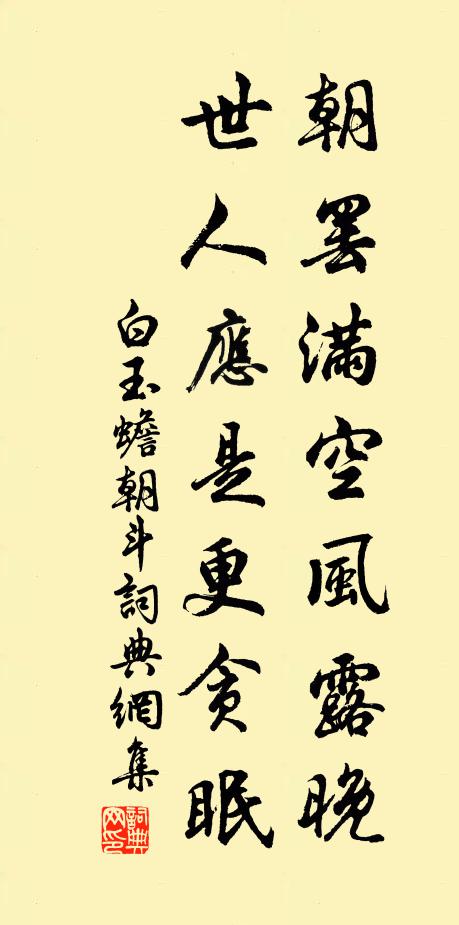 朝罷滿空風露晚
世人應是更貪眠
白玉蟾朝斗詞典網集
詞典网印